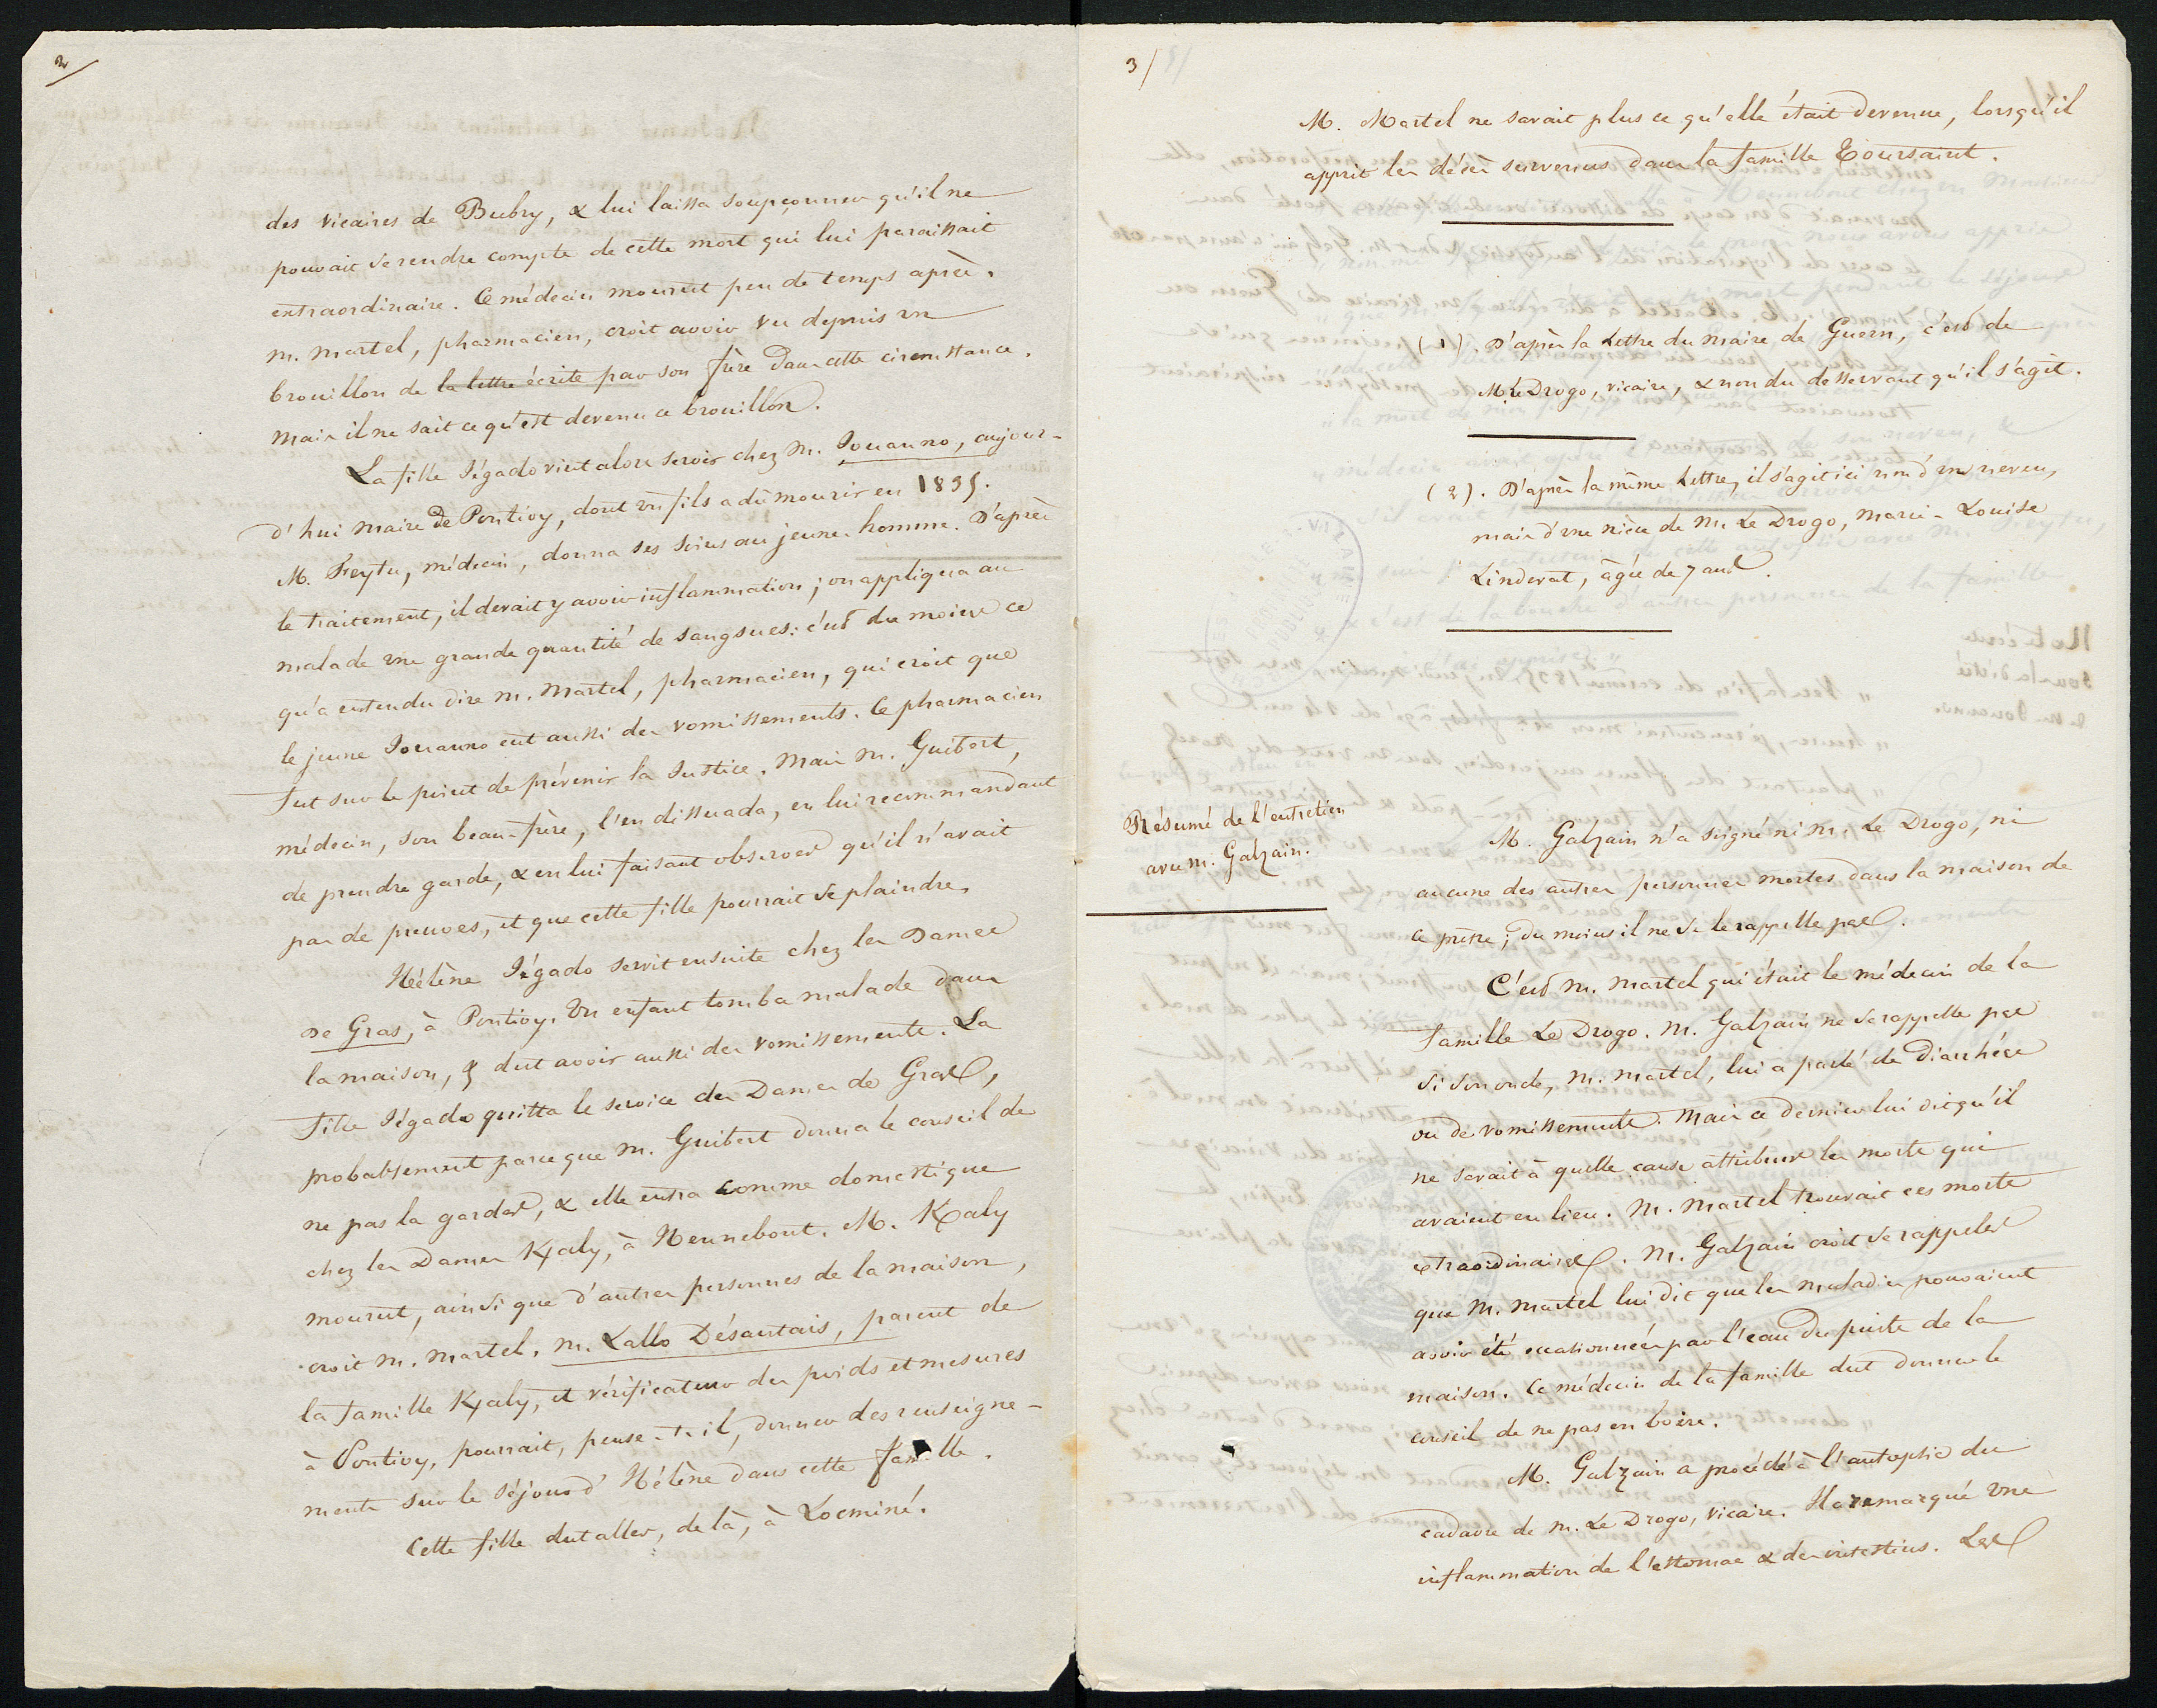 2/
des vicaires de Bubry, & lui laissa soupçonner qu'il ne
pouvait se rendre compte de cette mort qui lui paraissait
extraordinaire. Ce médecin mourut peu de temps après.
M. Martel, pharmacien, croit avoir vu depuis un
brouillon de la lettre écrite par son frère dans cette circonstance,
mais il ne sait ce qu'est devenu ce brouillon.
La fille Jégado vint alors servir chez M. Jouanno, aujour-
d'hui maire de Pontivy, dont un fils a dû mourir en 1835.
M. Freytu, médecin, donna ses soins au jeune homme. D'après
le traitement, il devait y avoir inflammation; on appliqua au
malade une grande quantité de sangsues: c'est du moins ce
qu'a entendu dire M. Martel, pharmacien, qui croit que
le jeune Jouanno eut aussi des vomissements. Ce pharmacien
fut sur le point de prévenir la Justice. Mais M. Guibert,
médecin, son beau-frère, l'en dissuada, en lui recommandant
de prendre garde, & en lui faisant observer qu'il n'avait
pas de preuves, et que cette fille pourrait se plaindre.
Hélène Jégado servit ensuite chez les Dames
De Gras, à Pontivy. Un enfant tomba malade dans
la maison, & dut avoir aussi des vomissements. La
fille Jégado quitta le service des Dames de Gras,
probablement parce que M. Guibert donna le conseil de
ne pas la garder, & elle entra comme domestique
chez les Dames Kaly, à Hennebont. M. Kaly
mourut, ainsi que d'autres personnes de la maison,
croit M. Martel. M. Lallo Désautais, parent de
la famille Kaly, et vérificateur des poids et mesures
à Pontivy, pourrait, pense-t-il, donner des renseigne-
ments sur le séjour d'Hélène dans cette famille.
Cette fille dut aller, de là, à Locminé.
3/
M. Martel ne savait plus ce qu'elle était devenue, lorsqu'il
apprit les décès survenus dans la famille Toursaint.
(1). D'après la Lettre du maire de Guern, c'est de
M. Le Drogo, vicaire, & non du desservant qu'il s'agit.
(2). D'après la même Lettre, il s'agit ici non d'un neveu,
mais d'une nièce de M. Le Drogo, Marie-Louise
Linderat, âgée de 7 ans.
Résumé de l'entretien
avec M. Galzain.
M. Galzain n'a soigné ni M. Le Drogo, ni
aucune des autres personnes mortes dans la maison de
ce prêtre; du moins il ne se le rappelle pas.
C'est M. Martel qui était le médecin de la
famille Le Drogo. M. Galzain ne se rappelle pas
si son oncle, M. Martel, lui a parlé de diarrhées
ou de vomissements. Mais ce dernier lui dit qu'il
ne savait à quelle cause attribuer les morts qui
avaient eu lieu. M. Martel trouvait ces morts
extraordinaires. M. Galzain croit se rappeler
que M. Martel lui dit que les maladies pouvaient
avoir été occasionnées par l'eau du puits de la
maison. Ce médecin de la famille dut donner le
conseil de ne pas en boire.
M. Galzain a procédé à l'autopsie du
cadavre de M. Le Drogo, vicaire. Il a remarqué une
inflammation de l'estomac & des intestins. Les